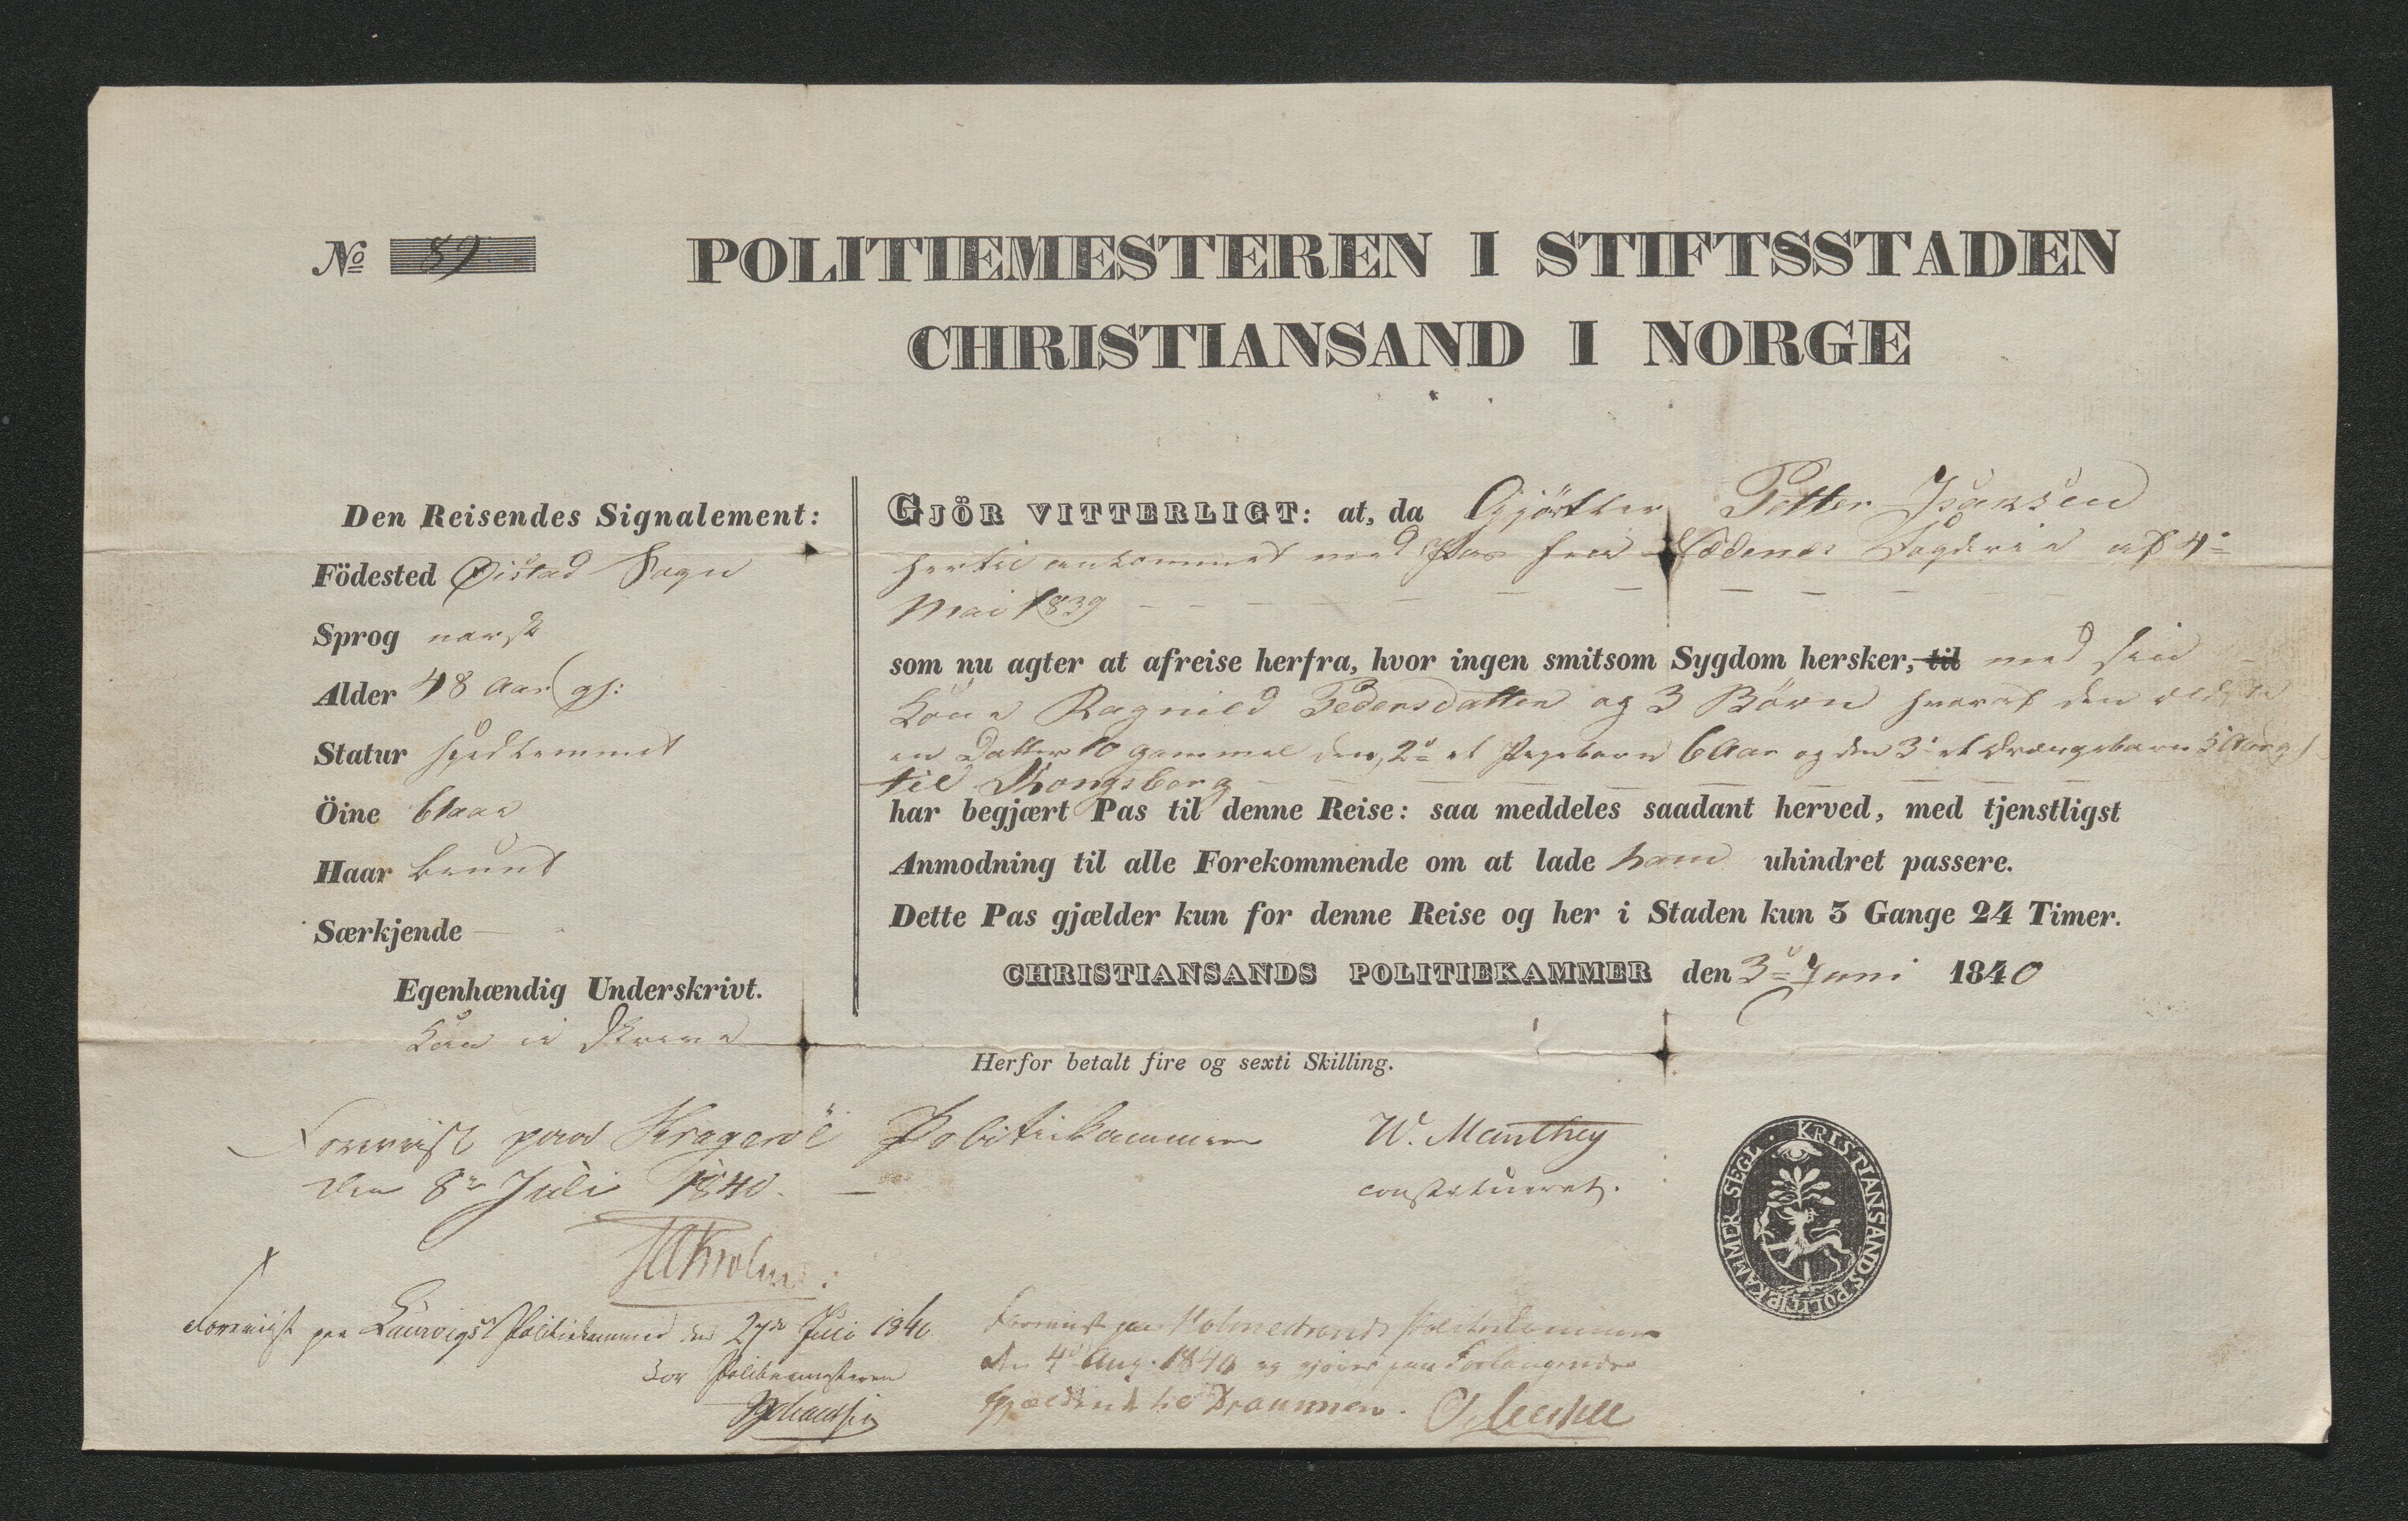 No 89
POLITIEMESTEREN I STIFTSSTADEN
CHRISTIANSAND I NORGE
Den Reisendes Signalement:
Födested Øistad Sogn
Sprog norsk
Alder 48 Aar gl:
Statur spedlemmet
Öine blaae
Haar bruunt
Særkjende —
Egenhændig Underskrivt.
Kan ei skrive
GJÖR VITTERLIGT: at, da Gjørtler Petter Isaksen
hertil ankommet med Pas fra Nædenæs Fogderie af 4de
Mai 1839
som nu agter at afreise herfra, hvor ingen smitsom Sygdom hersker, til med sin
Kone Ragnild Pedersdatter og 3 Børn hvoraf den ældste
en Datter 10 gammel den 2de et Pigebarn 6 Aar og den 3de et Drengebarn Aar gl
til Kongsberg
har begjært Pas til denne Reise: saa meddeles saadant herved, med tjenstligst
Anmodning til alle Forekommende om at lade ham uhindret passere.
Dette Pas gjælder kun for denne Reise og her i Staden kun 3 Gange 24 Timer.
CHRISTIANSANDS POLITIEKAMMER den 3de Juni 1840
Herfor betalt fire og sexti Skilling.
W. Manthey
constitueret.
KRISTIANSANDS POLITIEKAMMER SEGL
Foreviist paa Kragerøe Politiekammer
den 8de Juli 1840.
Foreviist paa Laurvigs Politiekammer den 27de Juli 1840
For Politiemesteren
Foreviist paa Holmestrands Politiekammer
den 4de Aug. 1840 og gjøres paa Forlangende
gjældende til Drammen.